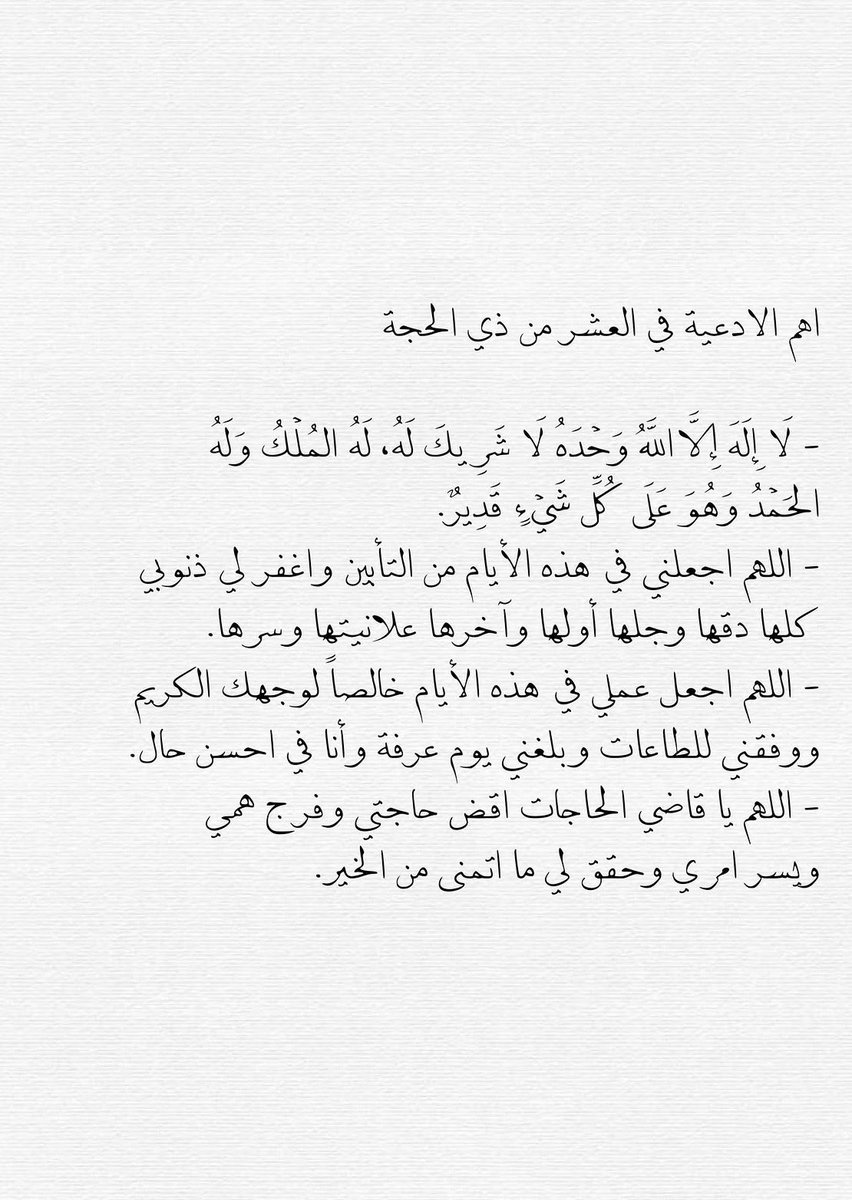 اهم الادعية في العشر من ذي الحجة
- لَا إِلَهَ إِلَّا اللَّهُ وَحْدَهُ لَا شَرِيكَ لَهُ، لَهُ المُلْكُ وَلَهُ
الحَمْدُ وَهُوَ عَلَى كُلِّ شَيْءٍ قَدِيرٌ.
- اللهم اجعلني في هذه الأيام من التأبين واغفر لي ذنوبي
كلها دقها وجلها أولها وآخرها علانيتها وسرها.
- اللهم اجعل عملي في هذه الأيام خالصاً لوجهك الكريم
ووفقني للطاعات وبلغني يوم عرفة وأنا في احسن حال.
- اللهم يا قاضي الحاجات اقض حاجتي وفرج همي
ويسر امري وحقق لي ما اتمنى من الخير.